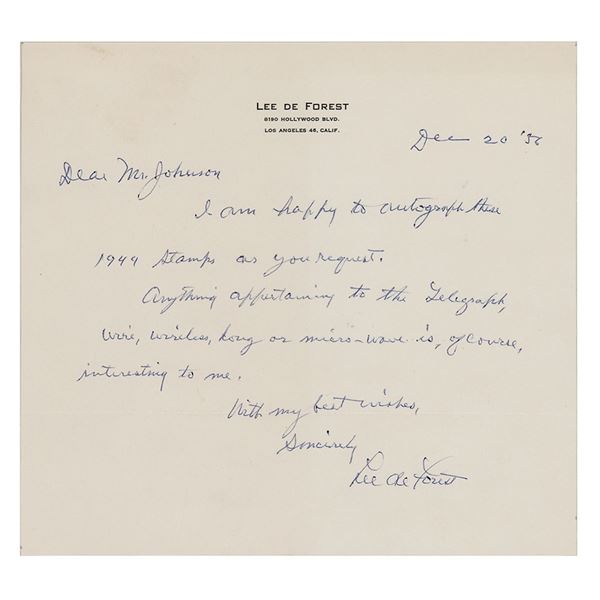 LEE DE FOREST
8190 HOLLYWOOD BLVD.
LOS ANGELES 46, CALIF.
Dec 20 '56
Dear Mr. Johnson
I am happy to autograph these
1944 stamps as you request.
Anything appertaining to the Telegraph,
wire, wireless, long or micro-wave is, of course,
interesting to me.
With my best wishes,
Sincerely
Lee de Forest